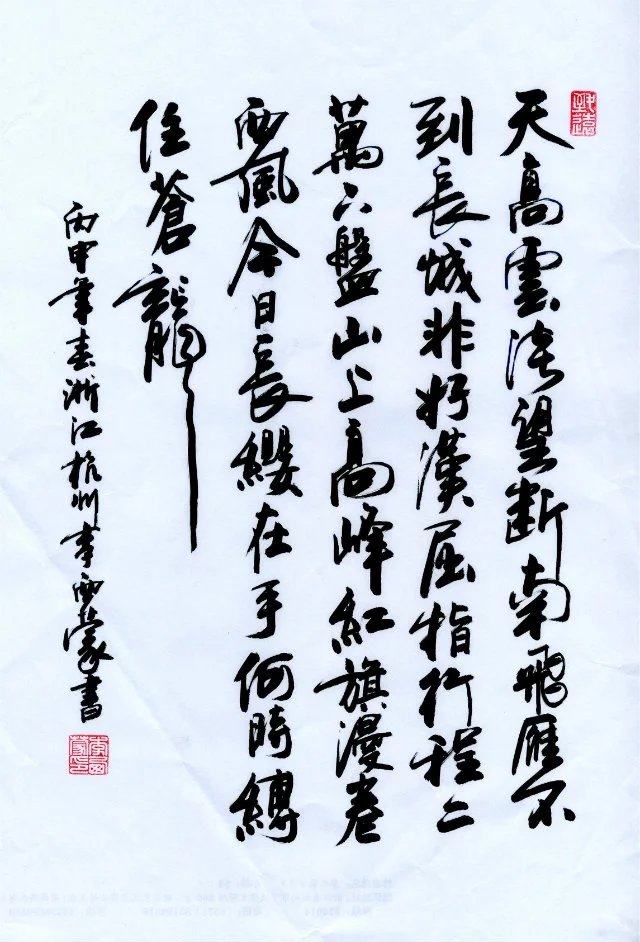 天高雲淡望斷南飛雁不
到長城非好漢屈指行程二
萬六盤山上高峰紅旗漫卷
西風今日長纓在手何時縛
住蒼龍
丙申年春浙江杭州李西蒙書